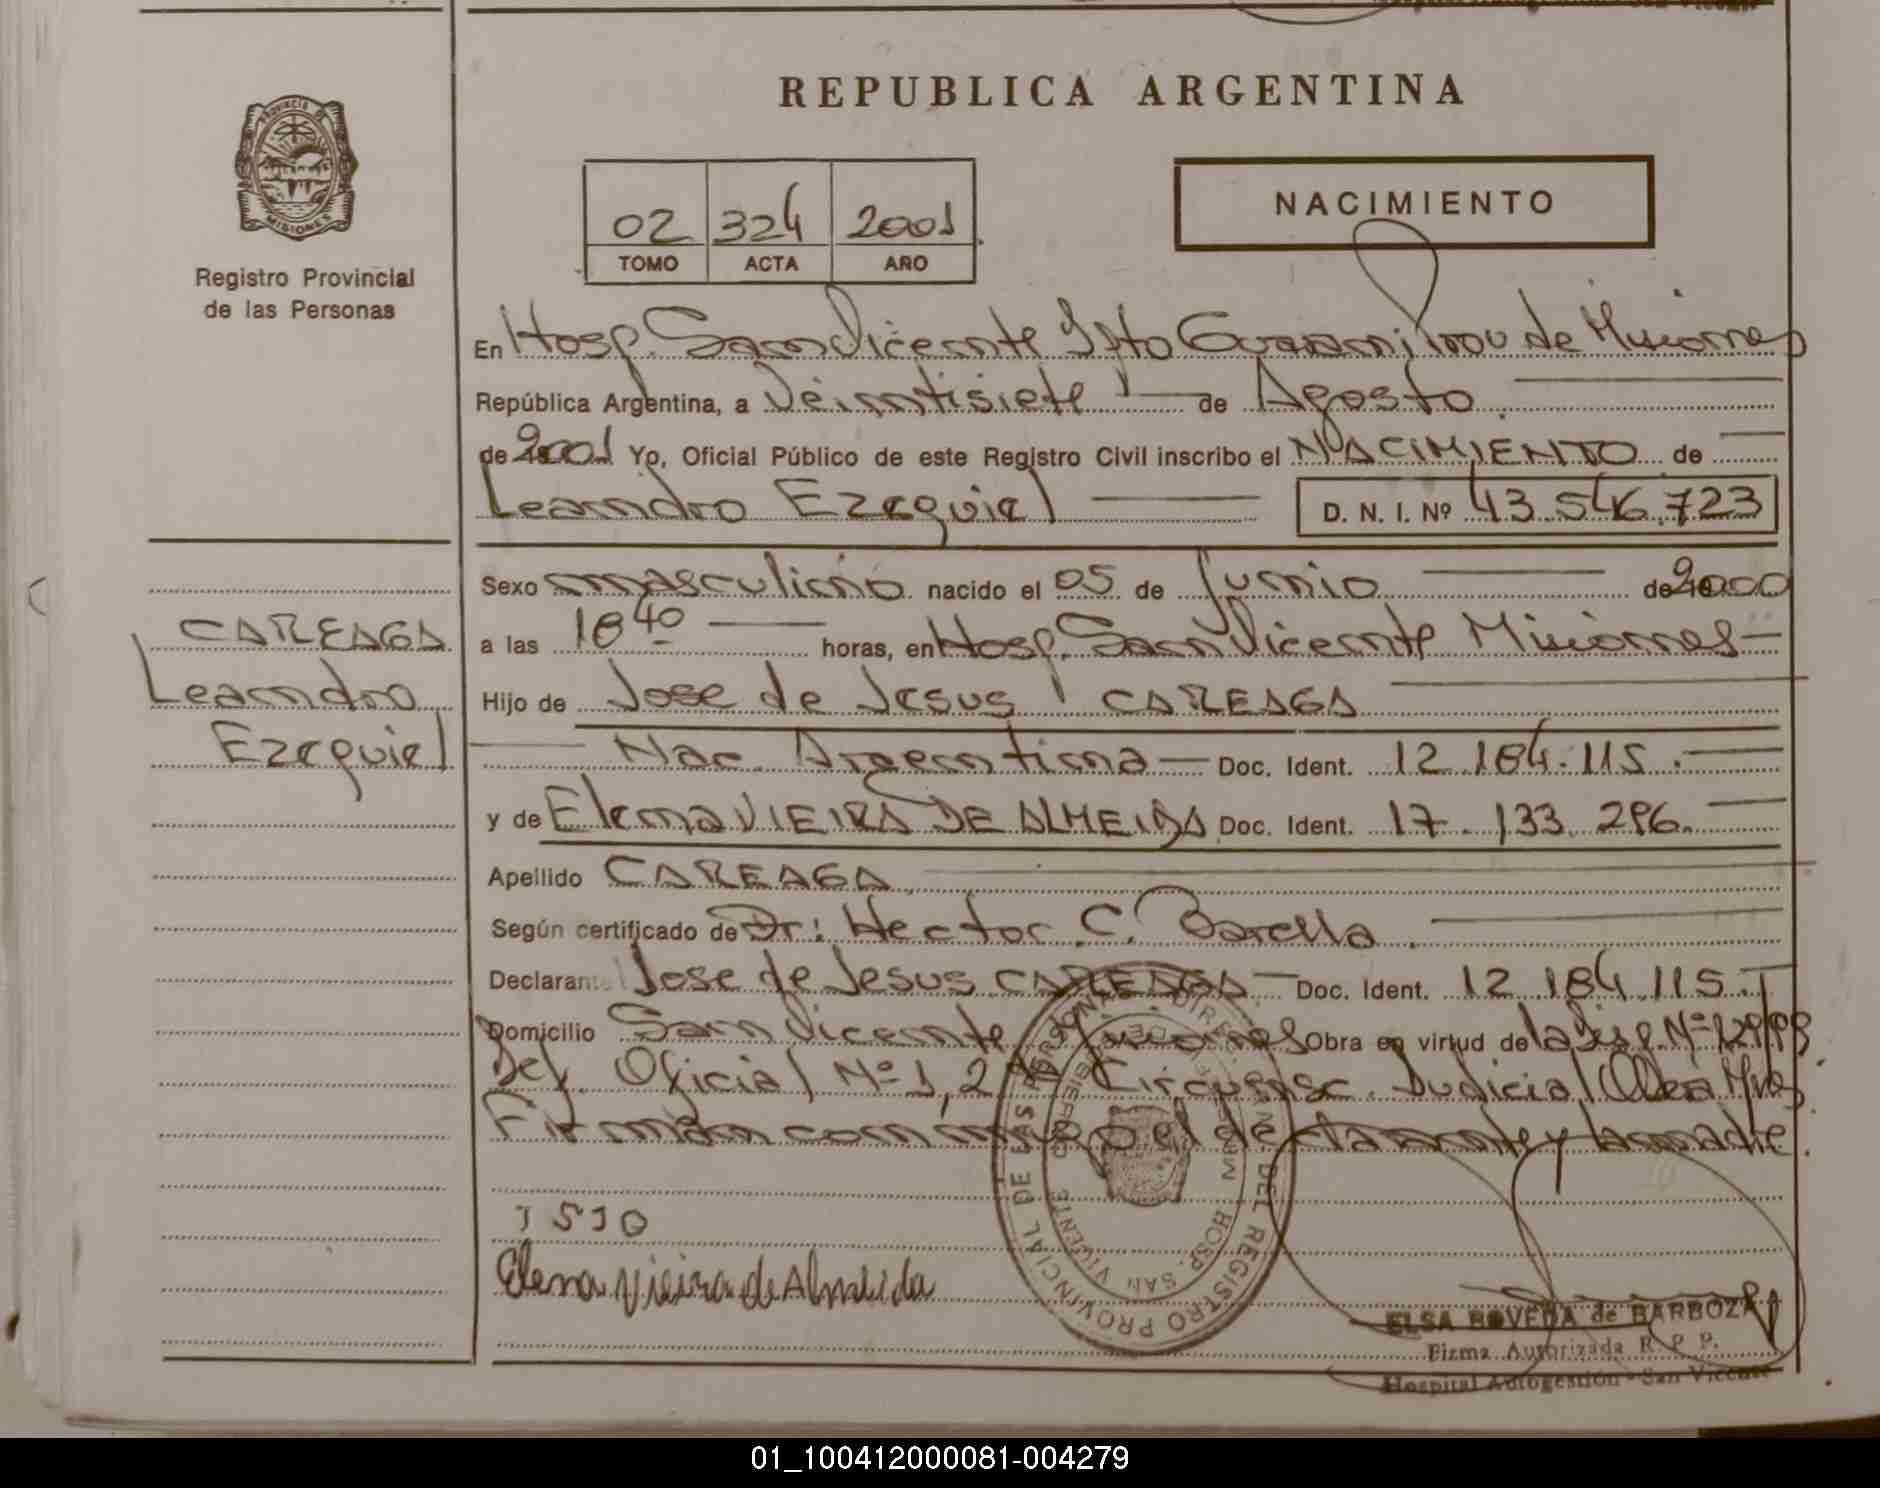 REPUBLICA ARGENTINA
PROVINCIA DE MISIONES
Registro Provincial
de las Personas
02 324 2001
TOMO ACTA AÑO
NACIMIENTO
En Hosp. San Vicente Dpto Guarani Prov de Misiones
República Argentina, a Veintisiete de Agosto
de 2001 Yo, Oficial Público de este Registro Civil inscribo el NACIMIENTO de
Leandro Ezequiel D. N. I. Nº 43.546.723
Sexo masculino nacido el 05 de Junio de 2000
a las 18 40 horas, en Hosp. San Vicente Misiones
Hijo de Jose de Jesus CAREAGA
Nac. Argentina Doc. Ident. 12.184.115.
y de Elena VIEIRA DE ALMEIDA Doc. Ident. 17.133.296.
Apellido CAREAGA
Según certificado de Dr: Hector C. Barella.
Declarante Jose de Jesus CAREAGA Doc. Ident. 12.184.115.
Domicilio San Vicente Misiones Obra en virtud de la Disp. Nº
Def. Oficial Nº 1, 2da Circunsc. Judicial Obera Mnes.
Firman conmigo el declarante y la madre.
CAREAGA
Leandro
Ezequiel
Elena Vieira de Almeida
REGISTRO PROVINCIAL DE LAS PERSONAS
HOSP. SAN VICENTE
ELSA BOVEDA de BARBOZA
Firma Autorizada R. P. P.
Hospital Autogestión - San Vicente
01_100412000081-004279